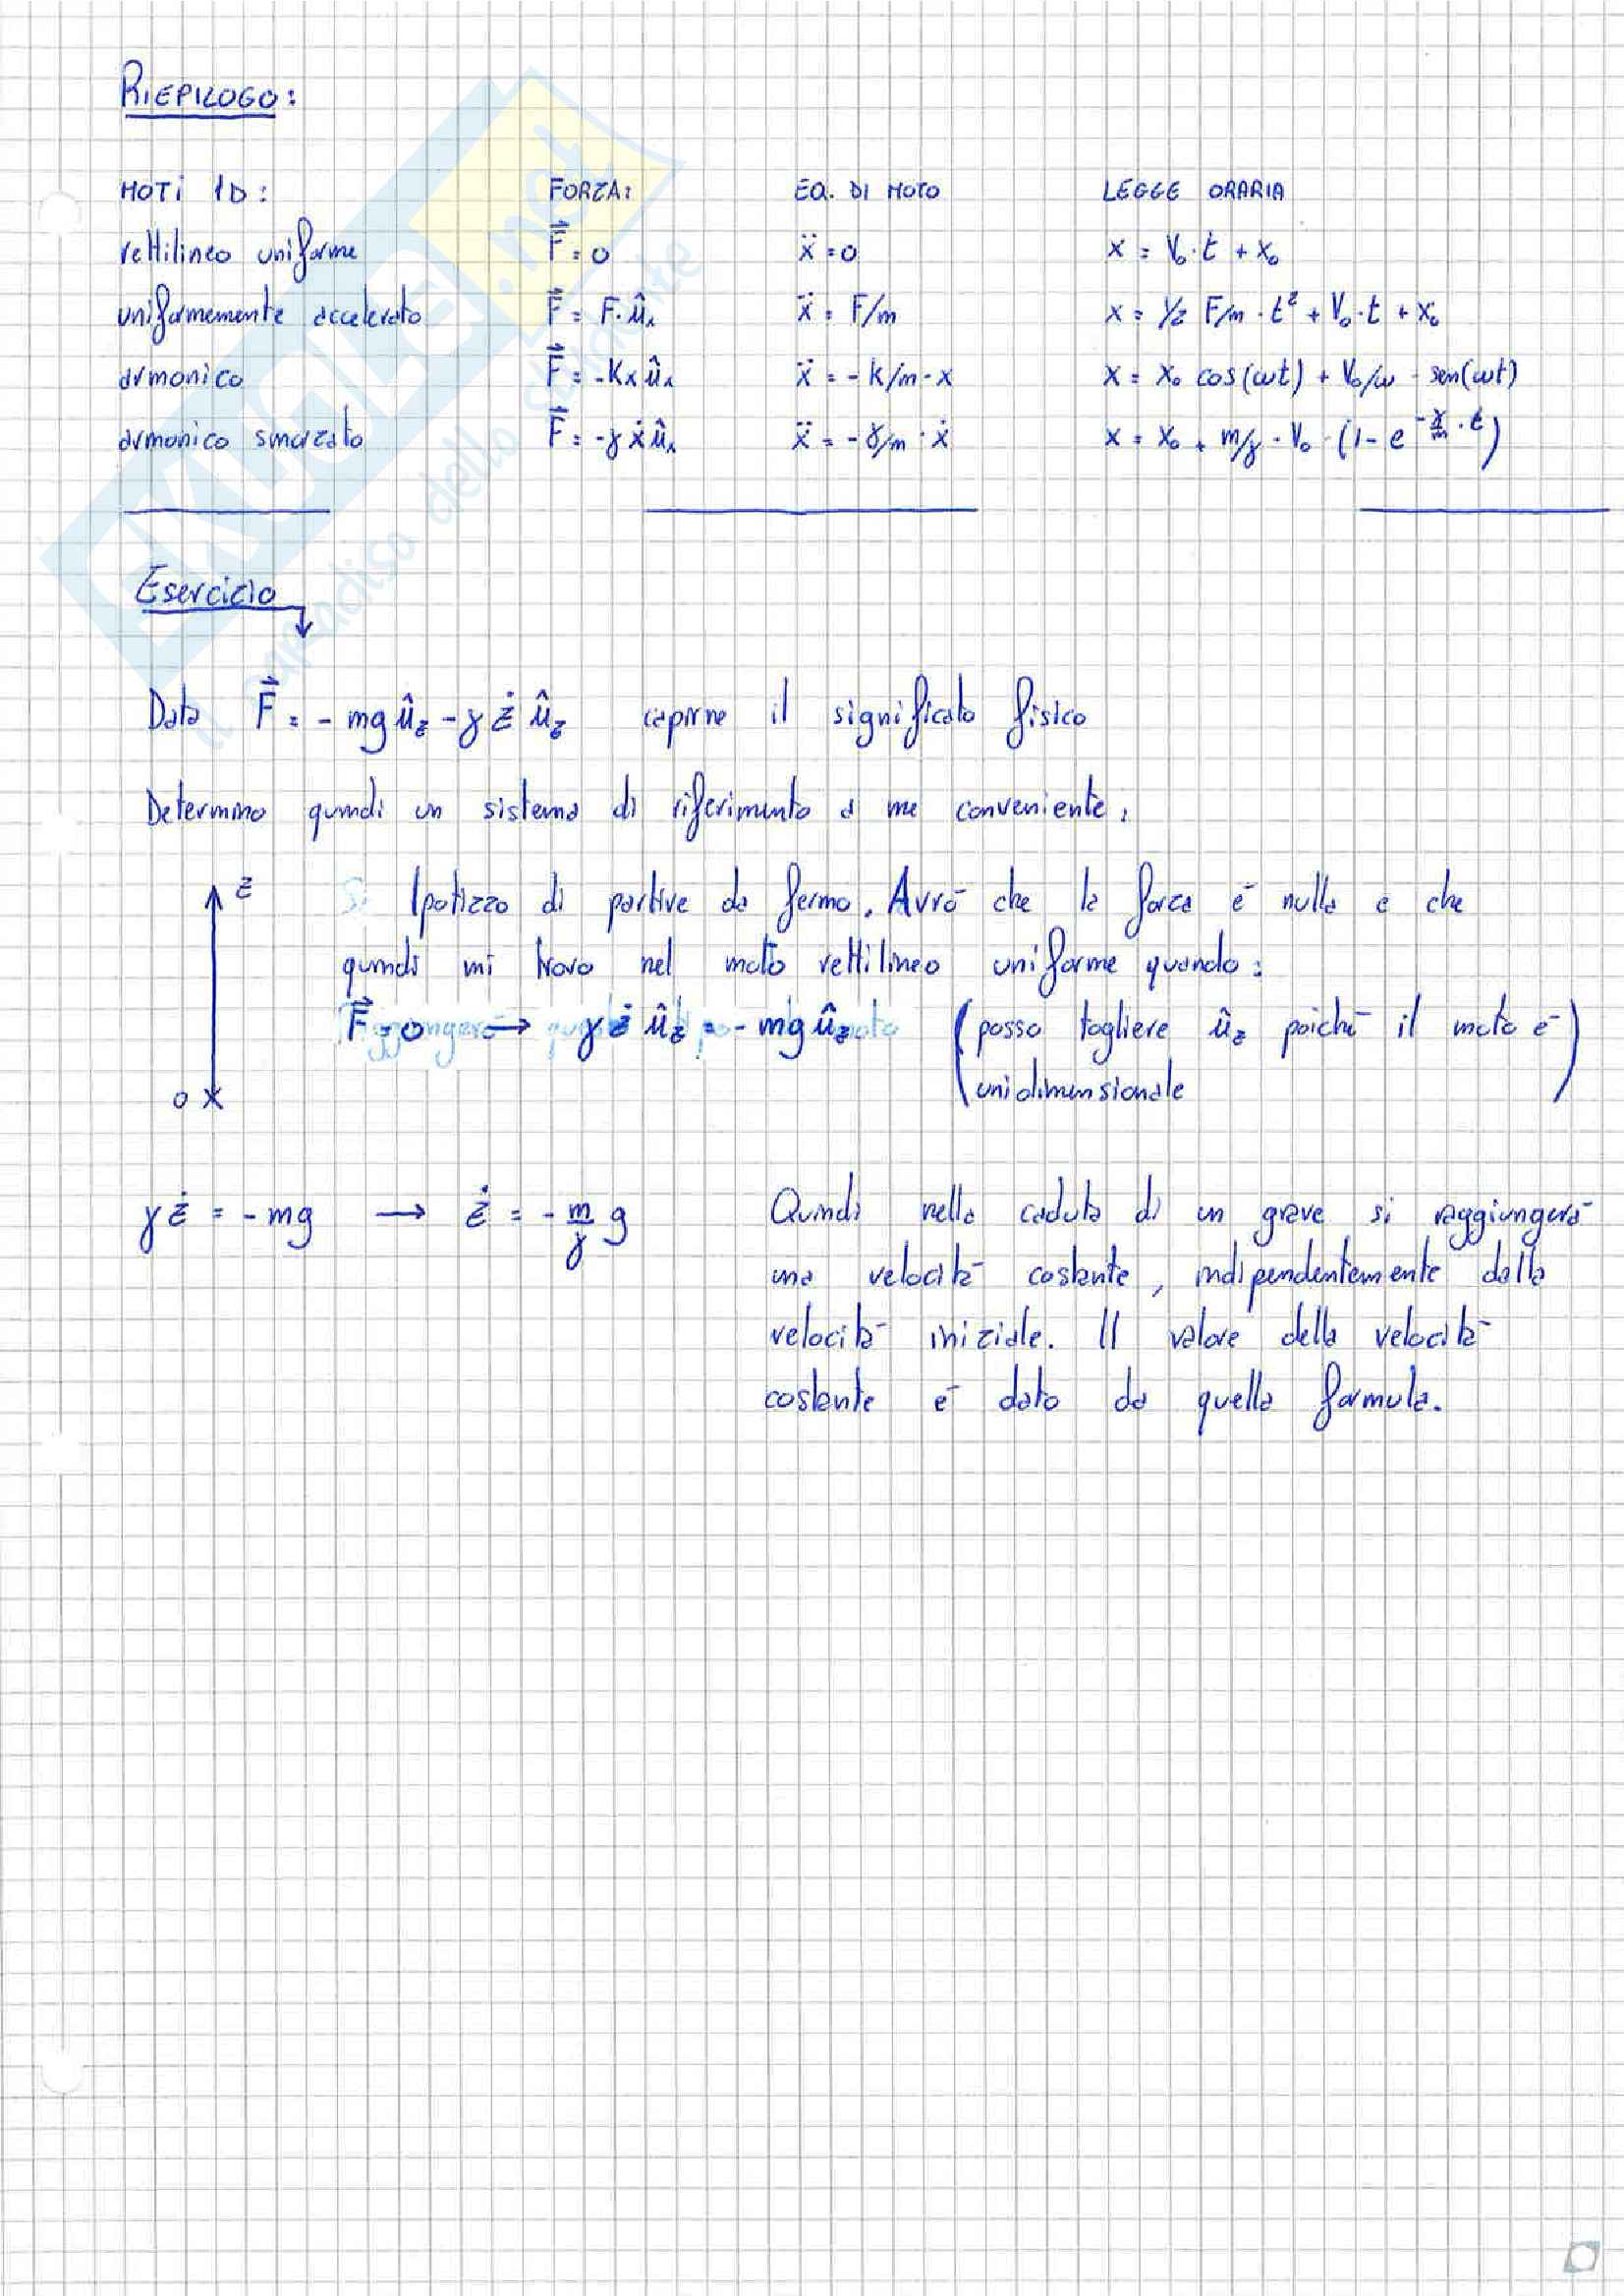 RIEPILOGO:
MOTI 1D: FORZA: EQ. DI MOTO LEGGE ORARIA
rettilineo uniforme F⃗ = 0 ẍ = 0 x = V₀·t + x₀
uniformemente accelerato F⃗ = F·ûₓ ẍ = F/m x = 1/2 F/m · t² + V₀·t + x₀
armonico F⃗ = -Kxûₓ ẍ = -k/m·x x = x₀ cos(ωt) + V₀/ω · sen(ωt)
armonico smorzato F⃗ = -γẋûₓ ẍ = -γ/m · ẋ x = x₀ + m/γ · V₀ · (1 - e^(-γ/m · t))
Esercizio
Data F⃗ = -mgû_z - γżû_z capirne il significato fisico
Determino quindi un sistema di riferimento a me conveniente:
z Ipotizzo di partire da fermo. Avrò che la forza è nulla e che
quindi mi trovo nel moto rettilineo uniforme quando:
F⃗ = 0 → γżû_z = -mgû_z (posso togliere û_z poichè il moto è
unidimensionale)
0
γż = -mg → ż = -m/γ g Quindi nella caduta di un grave si raggiungerà
una velocità costante, indipendentemente dalla
velocità iniziale. Il valore della velocità
costante è dato da quella formula.
SKUOLA.net
il paradiso dello studente